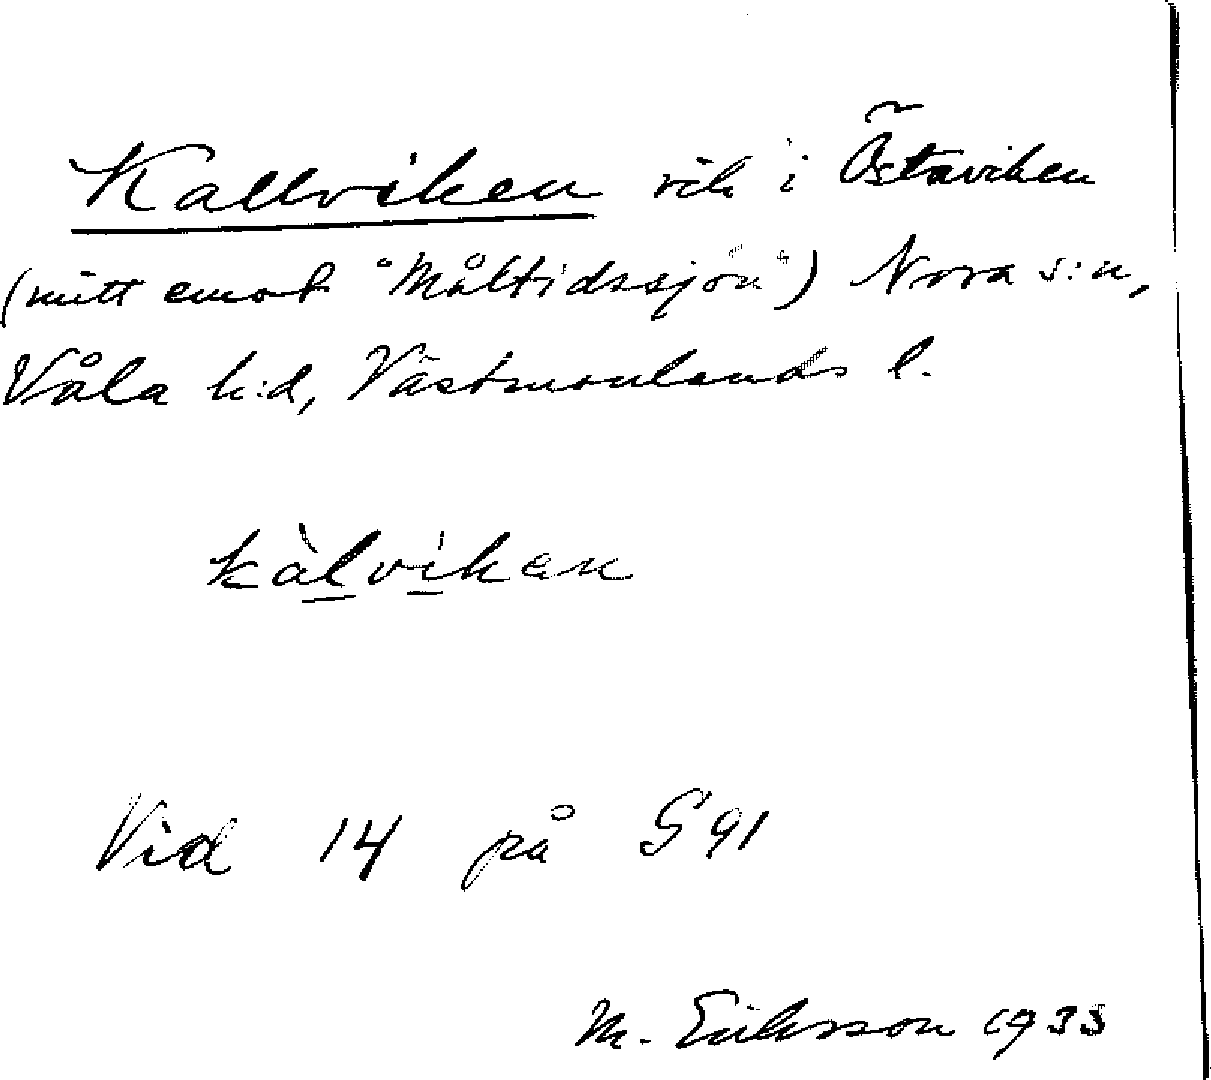 Kallviken vik i Östaviken
(mitt emot "Måltidssjön") Nora s:n,
Våla h:d, Västmanlands l.
kàlvikan
Vid 14 på S 91
M. Eriksson 1933